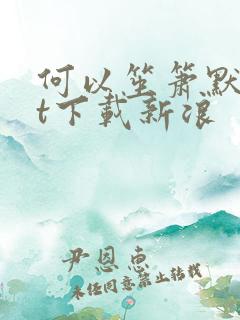 何以笙箫默
t下载新浪
尹恩惠
未经同意禁止转载